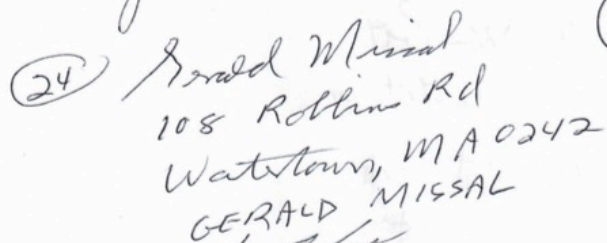 24 Gerald Missal
108 Robbins Rd
Watertown, MA 0242
GERALD MISSAL